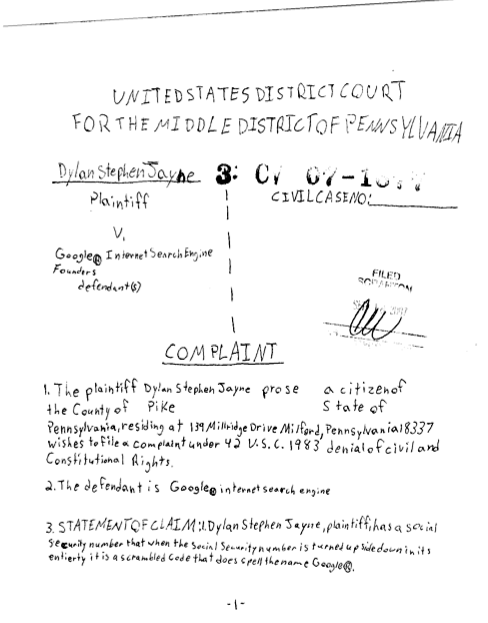 UNITED STATES DISTRICT COURT
FOR THE MIDDLE DISTRICT OF PENNSYLVANIA
Dylan Stephen Jayne 3: CV 07-
Plaintiff CIVIL CASE NO:
V.
Google® Internet Search Engine
Founders
defendant(s)
FILED
SCRANTON
COMPLAINT
1. The plaintiff Dylan Stephen Jayne prose a citizen of
the County of Pike State of
Pennsylvania, residing at 139 Millridge Drive Milford, Pennsylvania 18337
wishes to file a complaint under 42 U.S.C. 1983 denial of civil and
Constitutional Rights.
2. The defendant is Google® internet search engine
3. STATEMENT OF CLAIM: I, Dylan Stephen Jayne, plaintiff, has a social
security number that when the Social Security number is turned upside down in its
entierty it is a scrambled code that does spell the name Google®.
-1-